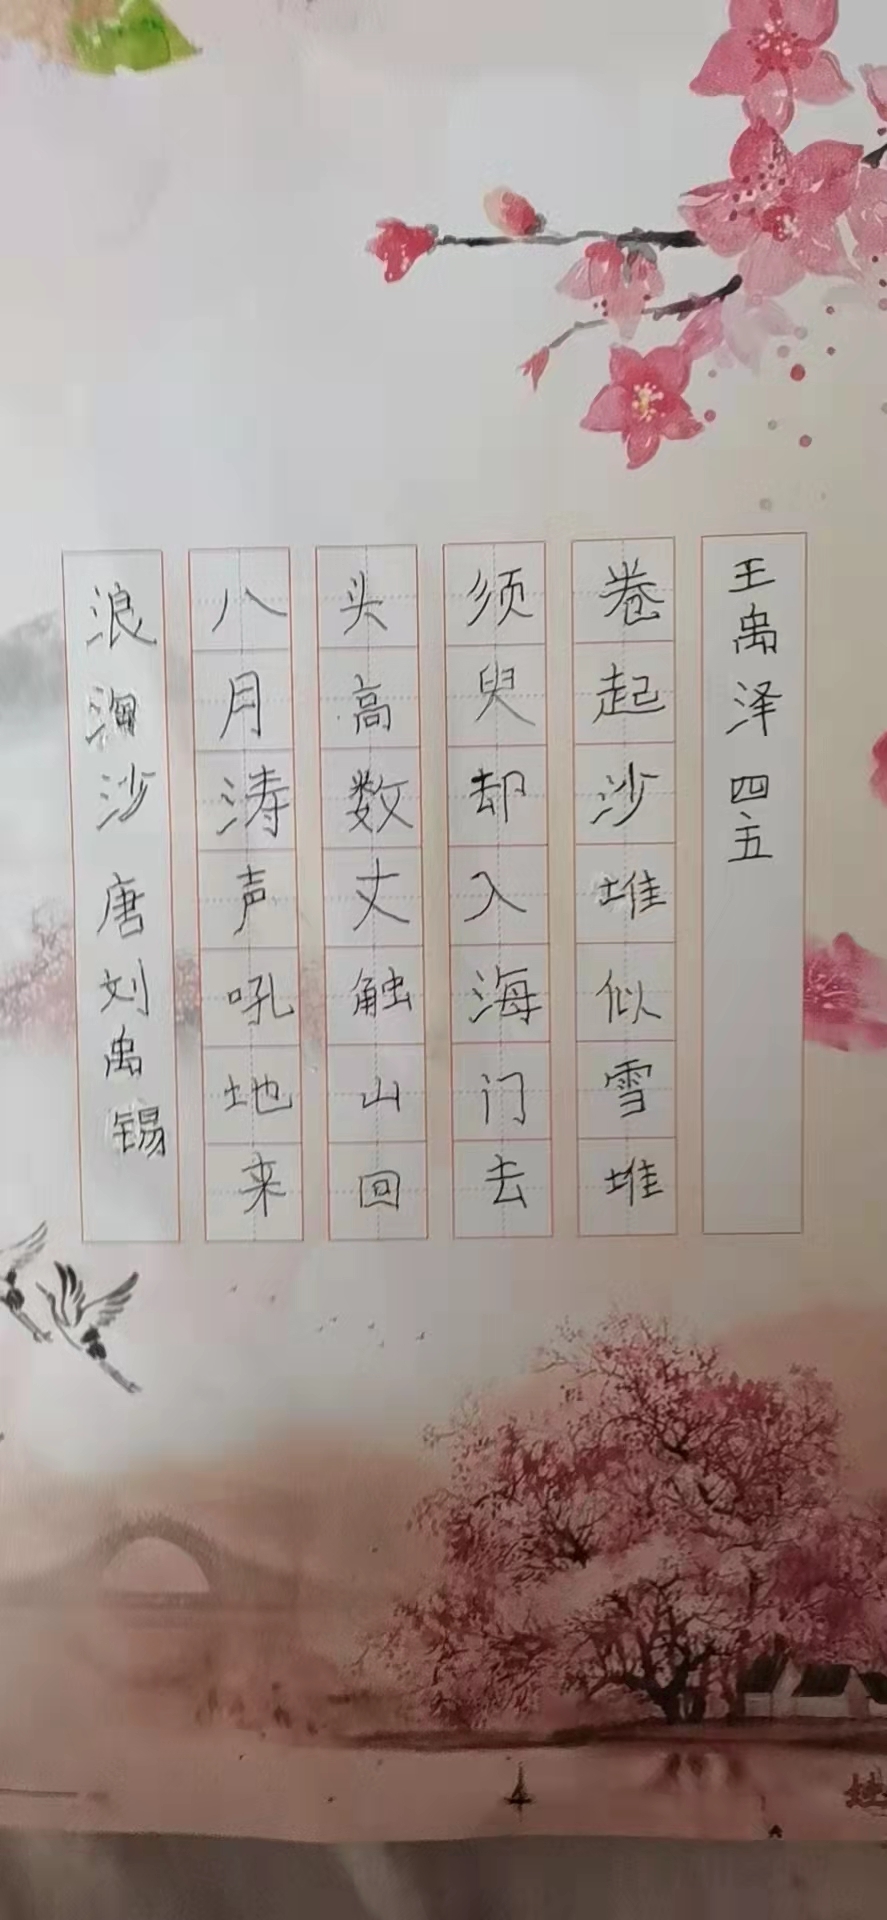 浪淘沙 唐 刘禹锡
八月涛声吼地来
头高数丈触山回
须臾却入海门去
卷起沙堆似雪堆
王禹泽 四五